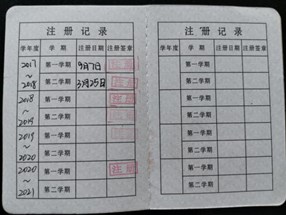 注 册 记 录
学年度 学 期 注册日期 注册签章
2017 第一学期 9月7日
～
2018 第二学期 3月25日
2018 第一学期
～
2019 第二学期
2019 第一学期
～
2020 第二学期
2020 第一学期 注册
～
2021 第二学期
注 册 记 录
学年度 学 期 注册日期 注册签章
第一学期
第二学期
第一学期
第二学期
第一学期
第二学期
第一学期
第二学期